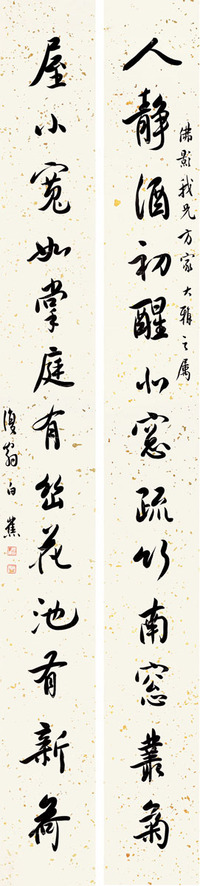 佛影我兄方家大雅之屬
人靜酒初醒北窗疏竹南窗叢菊
屋小寬如掌庭有幽花池有新荷
復翁白蕉